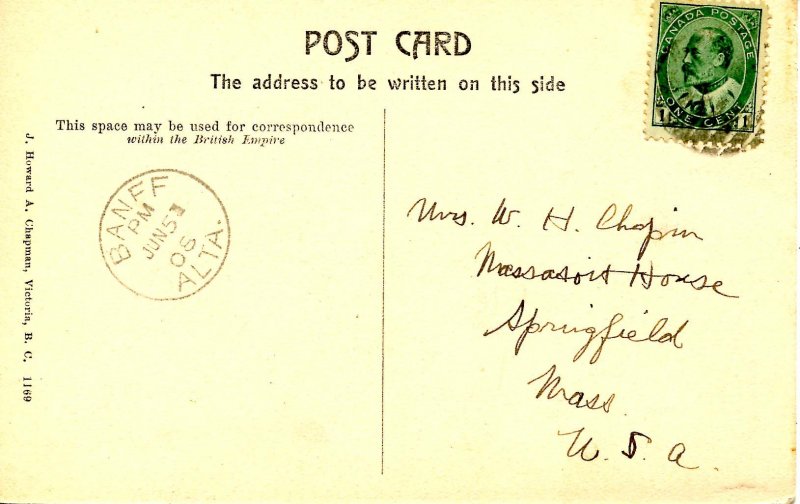 POST CARD
The address to be written on this side
CANADA POSTAGE
1 ONE CENT 1
This space may be used for correspondence
within the British Empire
BANFF
PM
JUN 5
06
ALTA.
J. Howard A. Chapman, Victoria, B. C. 1169
Mrs. W. H. Chapin
Massasoit House
Springfield
Mass.
U. S. A.